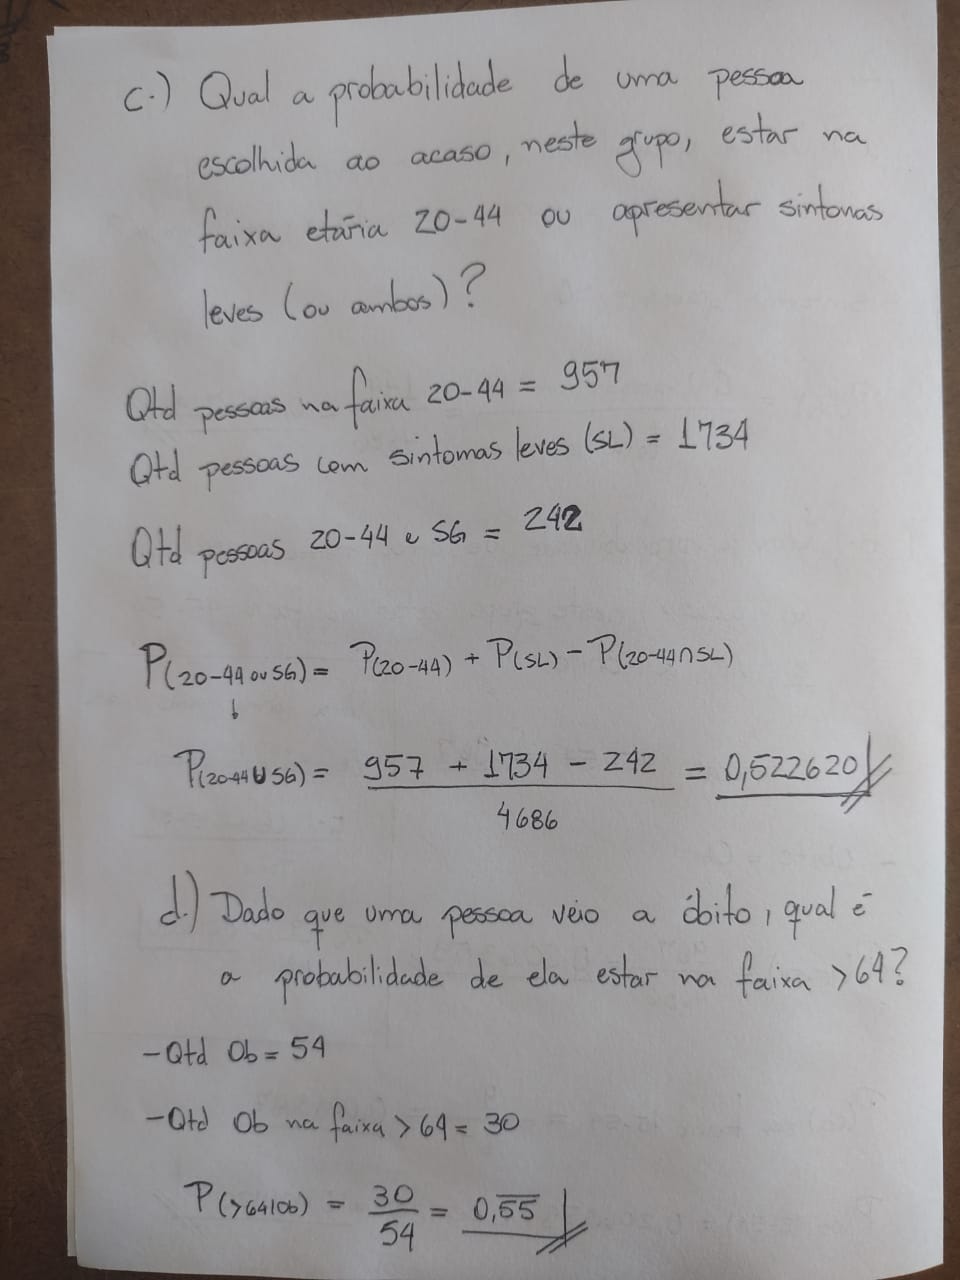 c.) Qual a probabilidade de uma pessoa
escolhida ao acaso, neste grupo, estar na
faixa etária 20-44 ou apresentar sintomas
leves (ou ambos)?
Qtd pessoas na faixa 20-44 = 957
Qtd pessoas com sintomas leves (SL) = 1734
Qtd pessoas 20-44 e SG = 242
P(20-44 ou SG) = P(20-44) + P(SL) - P(20-44∩SL)
P(20-44 U SG) = 957 + 1734 - 242 = 0,522620
4686
d.) Dado que uma pessoa veio a óbito, qual é
a probabilidade de ela estar na faixa >64?
-Qtd Ob = 54
-Qtd Ob na faixa > 64 = 30
P(>64|Ob) = 30/54 = 0,5̅5̅